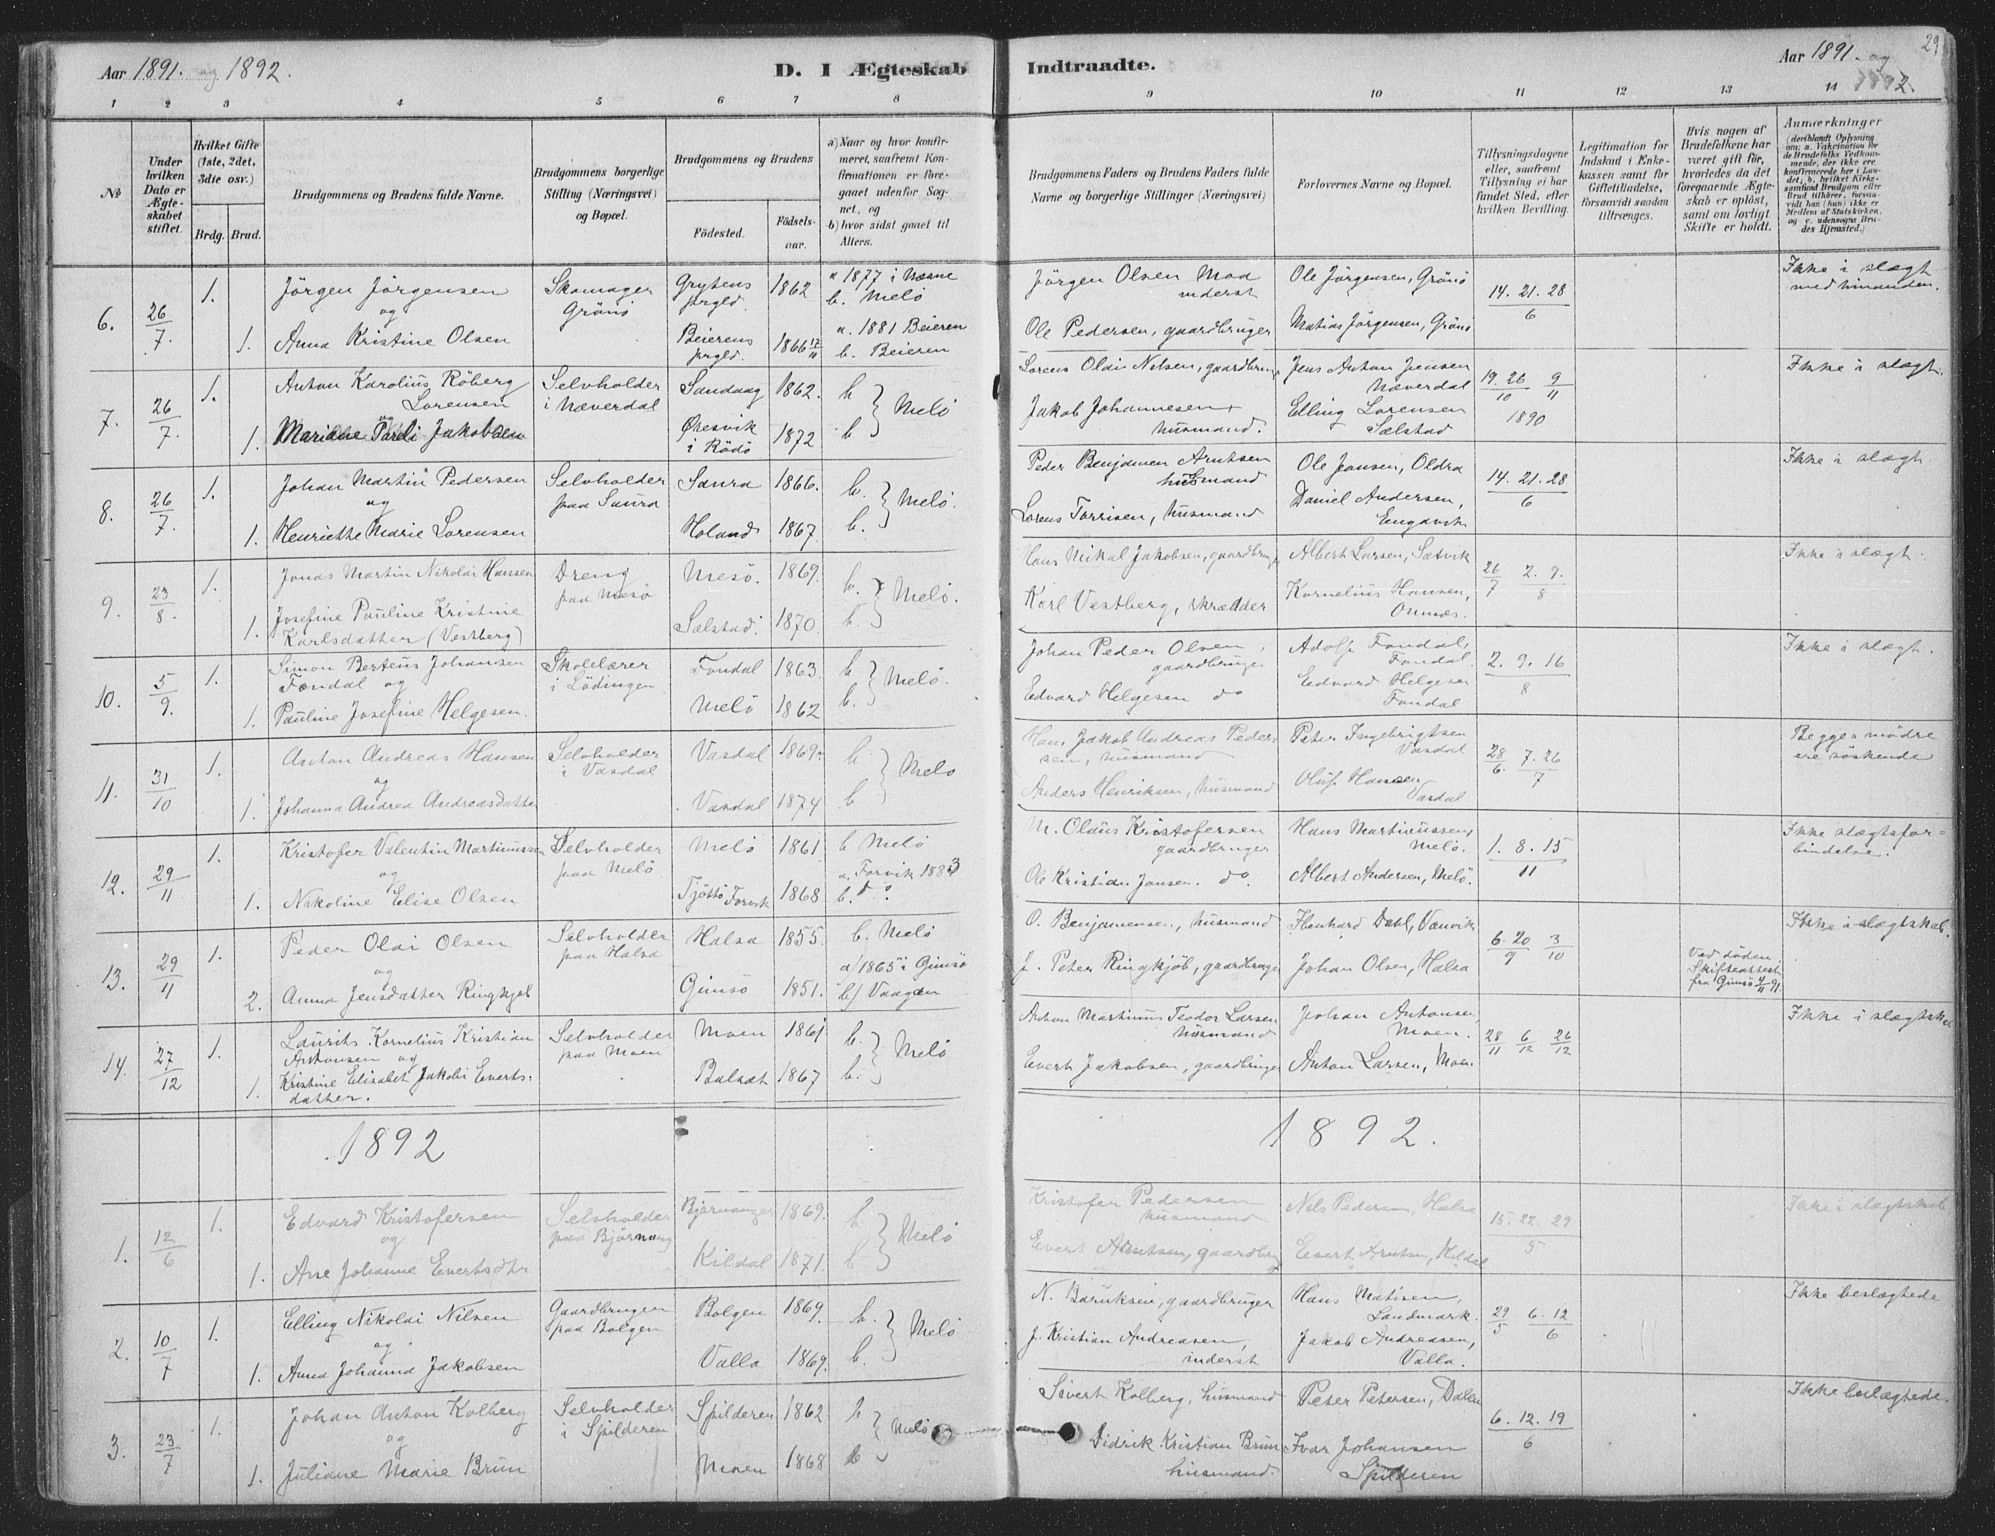 Aar 1891. og 1892.
D. I Ægteskab
Indtraadte.
Aar 1891. og 1892.
29
1 2 3 4 5 6 7 8
9 10 11 12 13 14
No
Under hvilken Dato er Ægteskabet stiftet.
Hvilket Gifte (1ste, 2det, 3die osv.)
Brdg. Brud.
Brudgommens og Brudens fulde Navne.
Brudgommens borgerlige Stilling (Næringsvei) og Bopæl.
Brudgommens og Brudens
Födested.
Födselsaar.
a) Naar og hvor konfirmeret, saafremt Konfirmationen er foregaaet udenfor Sognet, og
b) hvor sidst gaaet til Alters.
Brudgommens Faders og Brudens Faders fulde Navne og borgerlige Stillinger (Næringsvei)
Forlovernes Navne og Bopæl.
Tillysningsdagene eller, saafremt Tillysning ei har fundet Sted, efter hvilken Bevilling.
Legitimation for Indskud i Enkekassen samt for Giftetilladelse, forsaavidt saadan tiltrænges.
Hvis nogen af Brudefolkene har været gift för, hvorledes da det foregaaende Ægteskab er oplöst, samt om lovligt Skifte er holdt.
Anmærkninger
(deriblandt Oplysning om: a. Vakcination for de Brudefolks Vedkommende, der ikke ere konfirmerede her i Landet, b. hvilket Kirkesamfund Brudgom eller Brud tilhörer, forsaavidt han (hun) ikke er Medlem af Statskirken, og c. udensogns Brudes Hjemsted.)
6. 26/7. 1. Jörgen Jörgensen Skomager Grytens prgld. 1862 a 1877 i Næsne Jörgen Olsen Moa inderst Ole Jörgensen, Grönö 14. 21. 28/6 Ikke i slægt med hinanden.
og Grönö b. Melö
1. Anna Kristine Olsen Beierens prgld. 1866 17/11 a. 1881 Beieren b. Beieren Ole Pedersen, gaardbruger Matias Jörgensen, Grönö
7. 26/7. 1. Anton Karolius Röberg Lorensen Selvholder i Næverdal Sandaag 1862. b Melö Lorens Olai Nilsen, gaardbruger Jens Anton Jensen Næverdal 19. 26/10 9/11 1890 Ikke i slægt.
og
1. Mariane Pareli Jakobsen Öresvik i Rödö 1872 b Jakob Johannesen, husmand. Elling Lorensen Sælstad
8. 26/7. 1. Johan Martin Pedersen Selvholder paa Saura Saura 1866. b. Melö. Peder Benjamen Arntsen husmand Ole Jensen, Oldra 14. 21. 28/6 Ikke i slægt.
og
1. Henriette Marie Lorensen Holand 1867 b. Lorens Torrisen, husmand Daniel Andersen, Engavik
9. 23/8. 1. Jonas Martin Nikolai Hansen Dreng paa Mesö Mesö. 1869. b. Melö. Hans Mikal Jakobsen, gaardbruger Albert Larsen, Sætvik 26/7 2. 9./8 Ikke i slægt.
1. Josefine Pauline Kristine Karlsdatter (Vestberg) Sælstad. 1870. b. Karl Vestberg, skrædder Kornelius Hansen, Ornnæs.
10. 5/9. 1. Simon Berteus Johansen Fondal og Skolelærer i Lödingen Fondal 1863 b. Melö. Johan Peder Olsen, gaardbruger Adolf Fondal, Fondal. 2. 9. 16/8 Ikke i slægt.
1. Pauline Josefine Helgesen. Melö 1862 b. Edvard Helgesen do Edvard Helgesen Fondal
11. 31/10 1. Anton Andreas Hansen Selvholder i Vasdal Vasdal 1869. b Melö Hans Jakob Andreas Pedersen, husmand Peter Ingebrigtsen Vasdal 28/6. 7. 26/7 Begges mödre ere söskende
og
1. Johanna Andrea Andreasdatter Vasdal 1874 b Anders Henriksen, husmand Oluf Hansen Vasdal
12. 29/11 1. Kristofer Valentin Martinussen Selvholder paa Melö. Melö 1861. b Melö M. Olaus Kristofersen gaardbruger Hans Martinussen, Melö. 1. 8. 15/11 Ikke slægtsforbindelse.
og
1. Nikoline Elise Olsen Tjöttö Forvik 1868 a. Forvik 1883 b. do Ole Kristian Jonsen. do. Albert Andersen, Melö.
13. 29/11 1. Peder Olai Olsen Selvholder paa Halsa Halsa 1855. b. Melö O. Benjamensen, husmand Ebenhard Dahl, Vænvik 6. 20/9 3/10 Ikke i slægtskab.
og
2. Anna Jensdatter Ringkjöb Gimsö 1851. a/ 1865 i Gimsö b/ Vaagen J. Peter Ringkjöb, gaardbruger Johan Olsen, Halsa Ved döden. Skifteattest fra Gimsö 4/11 91.
14. 27/12 1. Laurits Kornelius Kristian Antonsen og Selvholder paa Moen Moen 1861 b. Melö Anton Martinus Teodor Larsen husmand Johan Antonsen, Moen. 28/11 6/12 26/12 Ikke i slægtskab
1. Kristine Elisabet Jakobi Evertsdatter. Balsæt 1867 b. Evert Jakobsen, gaardbruger Anton Larsen, Moen
1892
1892.
1. 12/6 1. Edvard Kristofersen Selvholder paa Björnang Björnanger 1869. b Melö Kristofer Pedersen husmand Nils Pedersen, Halsa 15. 22. 29/5 Ikke i slægtskab
og
1. Ane Johanne Evertsdtr Kildal 1871. b Evert Arntsen, gaardbrug Evert Arntsen, Kildal
2. 10/7 1. Elling Nikolai Nilsen Gaardbrugen paa Bolgen Bolgen 1869. b. Melö N. Baruksen, gaardbruger Hans Matisen, Landmark. 29/5 6. 12/6 Ikke beslægtede
og
1. Anna Johanna Jakobsen Valla 1869. b. J. Kristian Andreasen, inderst Jakob Andreasen, Valla.
3. 23/7 1. Johan Anton Kolberg Selvholder i Spilderen Spilderen 1862 b Melö Sivert Kolberg, husmand Peter Petersen, Dalen 6. 12. 19/6 Ikke beslægtede.
og
1. Juliane Marie Brun Moen 1868 b Didrik Kristian Brun husmand. Ivar Johansen Spilderen